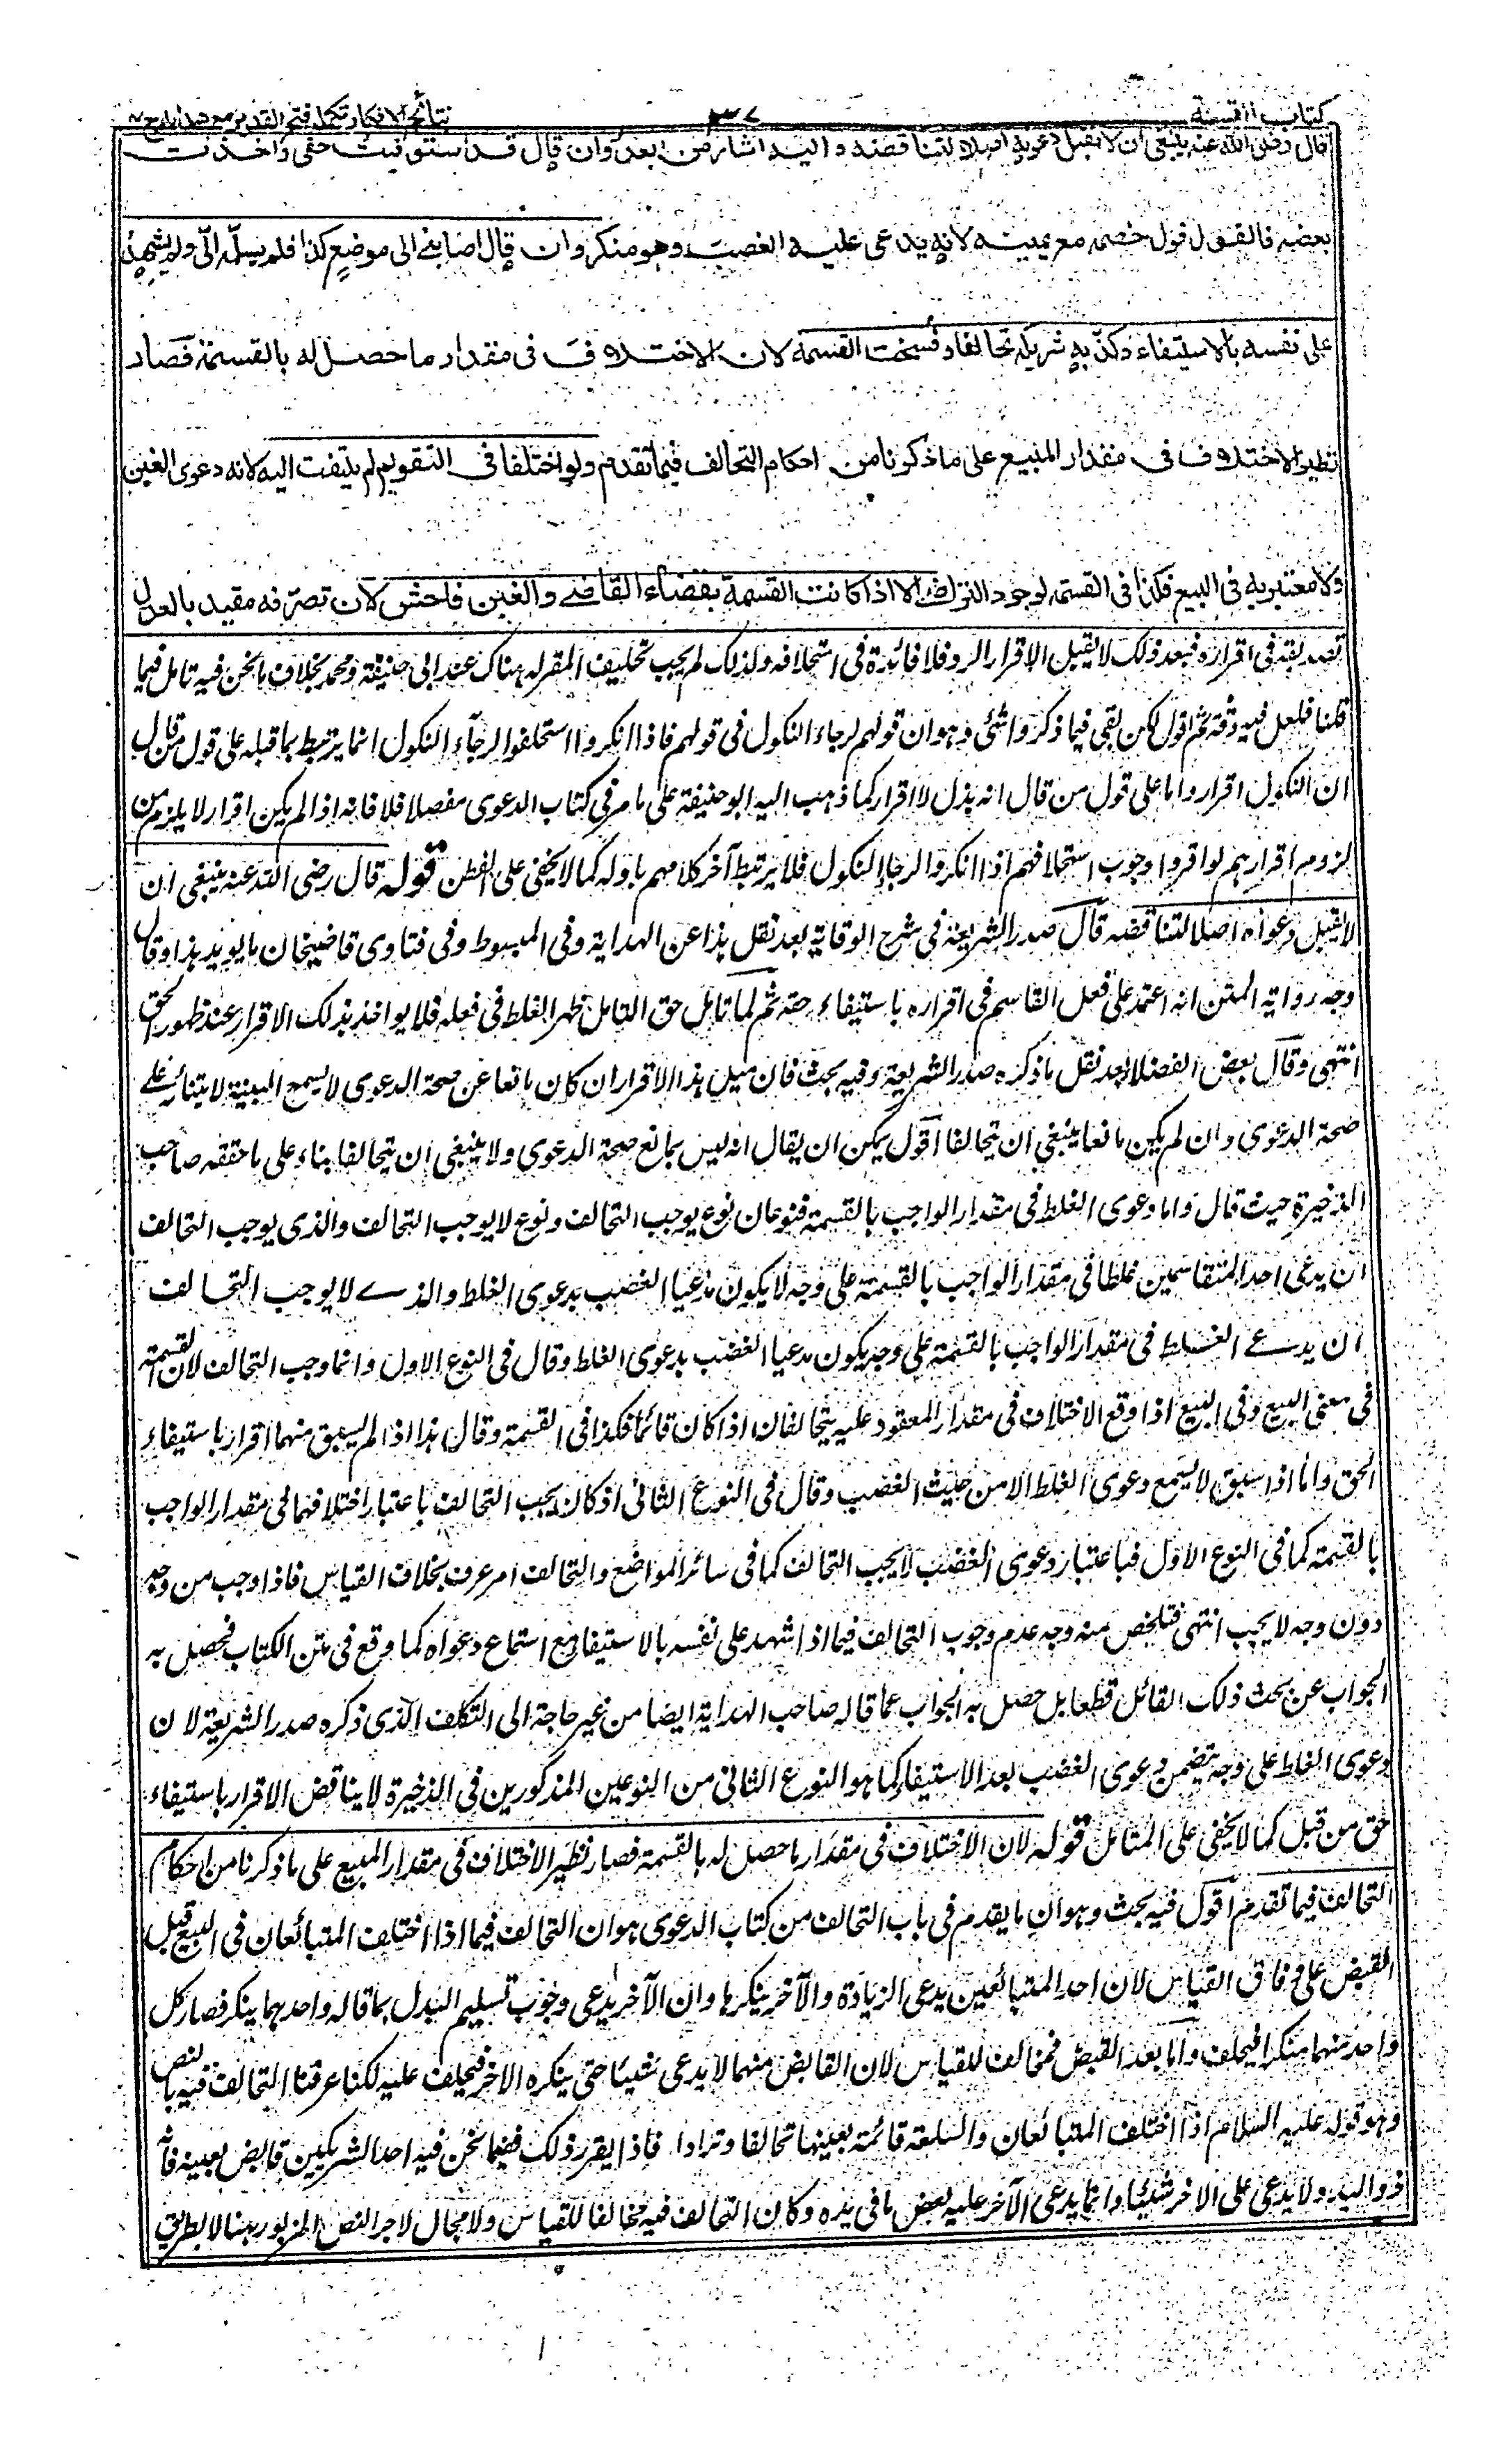 كتاب القسمة ٣٦٧ نتائج الافكار تكملة فتح القدير مع هداية ج ٨
قال رضى الله عنه ينبغى ان لا تقبل دعواه اصلا لتناقضه واليه اشار من بعد وان قال قد استوفيت حقى واخذت
بعضه فالقول قول خصمه مع يمينه لانه يدعى عليه الغصب وهو منكر وان قال اصابنى الى موضع كذا فلم يسلمه الىّ ولم يشهد
على نفسه بالاستيفاء وكذّبه شريكه تحالفا وفسخت القسمة لان الاختلاف فى مقدار ما حصل له بالقسمة فصار
نظير الاختلاف فى مقدار المبيع على ما ذكرنا من احكام التحالف فيما تقدم ولو اختلفا فى التقويم لم يلتفت اليه لانه دعوى الغبن
ولا معتبر به فى البيع فكذا فى القسمة لوجود التراضى الا اذا كانت القسمة بقضاء القاضى والغبن فاحش لان تصرّفه مقيد بالعدل
تصديقه فى اقراره فبعد ذلك لا يقبل الاقرار الرد فلا فائدة فى استحلافه ولذلك لم يجب تحليف المقر له هناك عند ابى حنيفة ومحمد بخلاف ما نحن فيه تامل فيما
قلنا فلعل فيه دقة ثم اقول لكن بقى فيما ذكروا شئ وهو ان قولهم لرجاء النكول فى قولهم فاذا انكروا استحلفوا لرجاء النكول انما يرتبط بما قبله على قول من قال
ان النكول اقرار واما على قول من قال انه بذل لا اقرار كما ذهب اليه ابو حنيفة على ما مر فى كتاب الدعوى مفصلا فلا فانه اذا لم يكن اقرار لا يلزم من
لزومه اقرارهم لو اقروا وجوب استحلافهم اذا انكروا لرجاء النكول فلا يرتبط آخر كلامهم باوله كما لا يخفى على الفطن قوله قال رضى الله عنه ينبغى ان
لا يقبل دعواه اصلا لتناقضه قال صدر الشريعة فى شرح الوقاية بعد نقل هذا عن الهداية وفى المبسوط وفى فتاوى قاضيخان ما يويد هذا وقال
وجه رواية المتن انه اعتمد على فعل القاسم فى اقراره باستيفاء حقه ثم لما تامل حق التامل ظهر الغلط فى فعله فلا يواخذ بذلك الاقرار عند ظهور الحق
انتهى وقال بعض الفضلاء بعد نقل ما ذكره صدر الشريعة وفيه بحث فان مثل هذا الاقرار ان كان مانعا عن صحة الدعوى لا يسمع البينة لابتنائه على
صحة الدعوى وان لم يكن مانعا ينبغى ان يتحالفا اقول يمكن ان يقال انه ليس بمانع صحة الدعوى ولا ينبغى ان يتحالفا بناء على ما حققه صاحب
الذخيرة حيث قال واما دعوى الغلط فى مقدار الواجب بالقسمة فنوعان نوع يوجب التحالف ونوع لا يوجب التحالف والذى يوجب التحالف
ان يدعى احد المتقاسمين غلطا فى مقدار الواجب بالقسمة على وجه لا يكون مدعيا الغصب بدعوى الغلط والذى لا يوجب التحالف
ان يدعى الغلط فى مقدار الواجب بالقسمة على وجه يكون مدعيا الغصب بدعوى الغلط وقال فى النوع الاول وانما وجب التحالف لان القسمة
فى معنى البيع وفى البيع اذا وقع الاختلاف فى مقدار المعقود عليه يتحالفان اذا كان قائما فكذا فى القسمة وقال هذا اذا لم يسبق منهما اقرار باستيفاء
الحق واما اذا سبق لا يسمع دعوى الغلط الا من حيث الغصب وقال فى النوع الثانى اذ كان يجب التحالف باعتبار اختلافهما فى مقدار الواجب
بالقسمة كما فى النوع الاول فباعتبار دعوى الغصب لا يجب التحالف كما فى سائر المواضع والتحالف امر عرف بخلاف القياس فاذا وجب من وجه
دون وجه لا يجب انتهى فتلخص منه وجه عدم وجوب التحالف فيما اذا شهد على نفسه بالاستيفاء مع استماع دعواه كما وقع فى متن الكتاب فحصل به
الجواب عن بحث ذلك القائل قطعا بل حصل به الجواب عما قاله صاحب الهداية ايضا من غير حاجة الى التكلف الذى ذكره صدر الشريعة لان
دعوى الغلط على وجه يتضمن دعوى الغصب بعد الاستيفاء كما هو النوع الثانى من النوعين المذكورين فى الذخيرة لا يناقض الاقرار باستيفاء
حق من قبل كما لا يخفى على المتامل قوله لان الاختلاف فى مقدار ما حصل له بالقسمة فصار نظير الاختلاف فى مقدار المبيع على ما ذكرنا من احكام
التحالف فيما تقدم اقول فيه بحث وهو ان ما تقدم فى باب التحالف من كتاب الدعوى هو ان التحالف فيما اذا اختلف المتبائعان فى البيع قبل
القبض على وفاق القياس لان احد المتبائعين يدعى الزيادة والآخر ينكرها وان الآخر يدعى وجوب تسليم البدل بما قاله واحدهما ينكر فصار كل
واحد منهما منكرا فيحلف واما بعد القبض فمخالف للقياس لان القابض منهما لا يدعى شيئا حتى ينكره الاخر فيحلف عليه لكنا عرفنا التحالف فيه بالنص
وهو قوله عليه السلام اذا اختلف المتبائعان والسلعة قائمة بعينها تحالفا وترادا فاذا تقرر ذلك ففيما نحن فيه احد الشريكين قابض بعينه
ولا يدعى على الاخر شيئا وانما يدعى الآخر عليه بعض ما فى يده وكان التحالف فيه مخالفا للقياس ولا مجال لاجراء النص المزبور ههنا لا بطريق